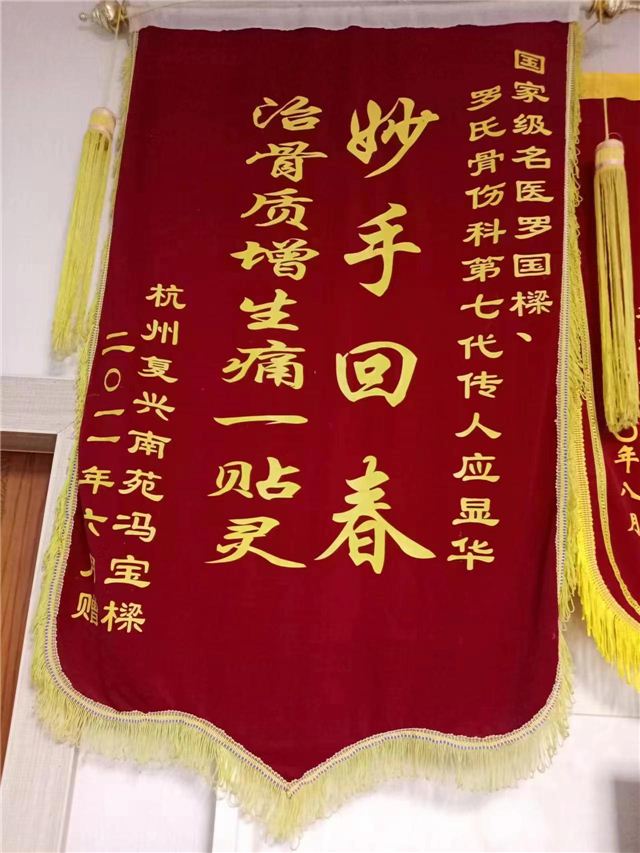 国家级名医罗国樑、
罗氏骨伤科第七代传人应显华
妙手回春
治骨质增生痛一贴灵
杭州复兴南苑冯宝樑
二〇二一年六月赠
年八月